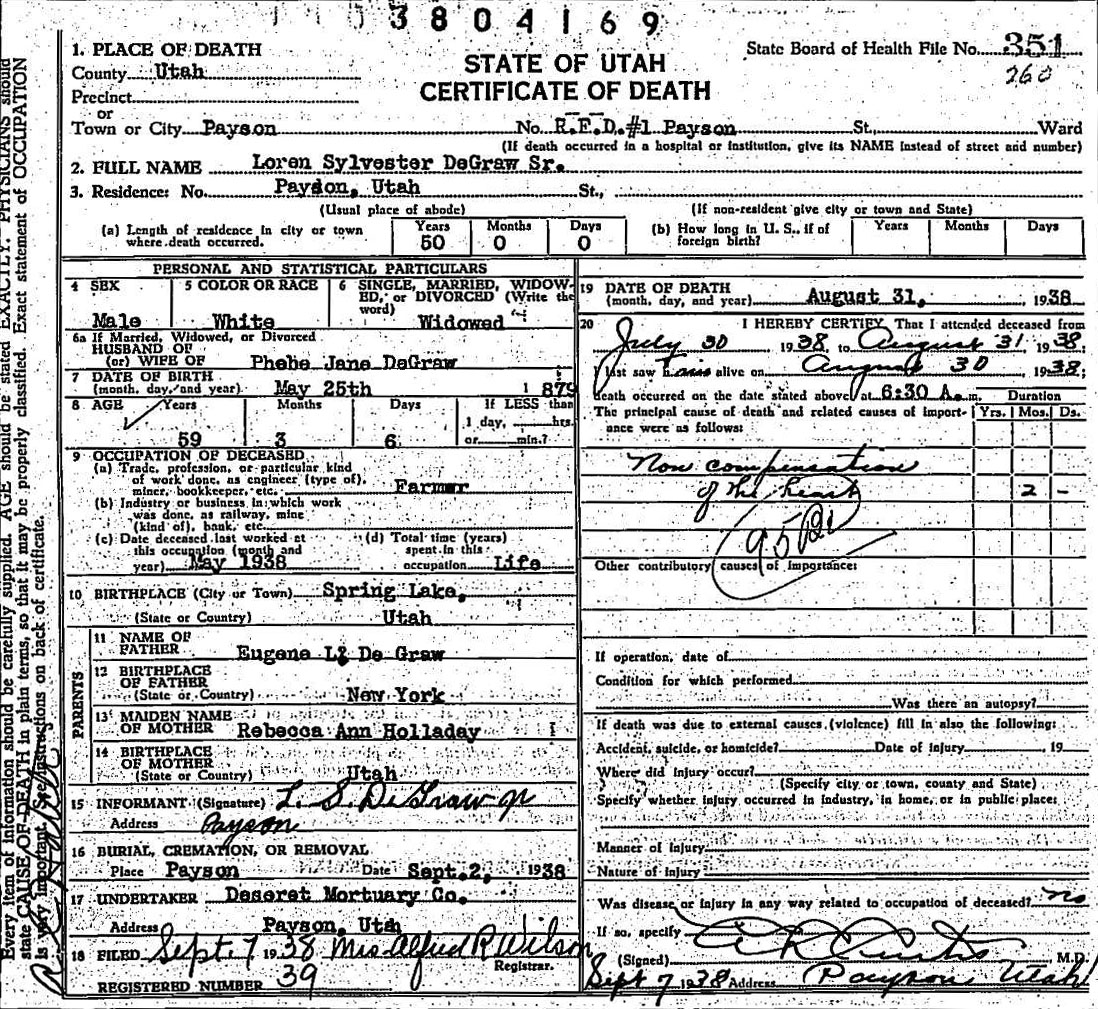 3804169
1. PLACE OF DEATH
County Utah
Precinct
or
Town or City Payson No. R.F.D.#1 Payson St., Ward
(If death occurred in a hospital or institution, give its NAME instead of street and number)
STATE OF UTAH
CERTIFICATE OF DEATH
State Board of Health File No. 351
260
2. FULL NAME Loren Sylvester DeGraw Sr.
3. Residence: No. Payson, Utah St.,
(Usual place of abode) (If non-resident give city or town and State)
(a) Length of residence in city or town where death occurred. Years 50 Months 0 Days 0
(b) How long in U. S., if of foreign birth? Years Months Days
PERSONAL AND STATISTICAL PARTICULARS
4 SEX Male
5 COLOR OR RACE White
6 SINGLE, MARRIED, WIDOWED, or DIVORCED (Write the word) Widowed
6a If Married, Widowed, or Divorced
HUSBAND OF
(or) WIFE OF Phebe Jane DeGraw
7 DATE OF BIRTH
(month, day, and year) May 25th 1879
8 AGE Years 59 Months 3 Days 6 If LESS than 1 day, hrs. or min.?
9 OCCUPATION OF DECEASED
(a) Trade, profession, or particular kind
of work done, as engineer (type of),
miner, bookkeeper, etc. Farmer
(b) Industry or business in which work
was done, as railway, mine
(kind of), bank, etc.
(c) Date deceased last worked at
this occupation (month and
year) May 1938
(d) Total time (years)
spent in this
occupation Life
10 BIRTHPLACE (City or Town) Spring Lake,
(State or Country) Utah
PARENTS
11 NAME OF
FATHER Eugene L. De Graw
12 BIRTHPLACE
OF FATHER
(State or Country) New York
13 MAIDEN NAME
OF MOTHER Rebecca Ann Holladay
14 BIRTHPLACE
OF MOTHER
(State or Country) Utah
15 INFORMANT (Signature) L. S. DeGraw Jr
Address Payson
16 BURIAL, CREMATION, OR REMOVAL
Place Payson Date Sept. 2, 1938
17 UNDERTAKER Deseret Mortuary Co.
Address Payson, Utah
18 FILED Sept. 7 1938 Mrs Alfred R Wilson
Registrar.
REGISTERED NUMBER 39
19 DATE OF DEATH
(month, day, and year) August 31, 1938
20 I HEREBY CERTIFY That I attended deceased from
July 30 1938 to August 31 1938;
I last saw him alive on August 30 1938;
death occurred on the date stated above, at 6:30 A. m.
Duration
The principal cause of death and related causes of importance were as follows: Yrs. Mos. Ds.
Non compensation
of the heart 2 -
95
Other contributory causes of importance:
If operation, date of
Condition for which performed
Was there an autopsy?
If death was due to external causes (violence) fill in also the following:
Accident, suicide, or homicide? Date of injury , 19
Where did injury occur?
(Specify city or town, county and State)
Specify whether injury occurred in industry, in home, or in public place:
Manner of injury
Nature of injury
Was disease or injury in any way related to occupation of deceased? no
If so, specify
(Signed) Curtis M.D.
Sept 7 1938 Address Payson Utah
Every item of information should be carefully supplied. AGE should be stated EXACTLY. PHYSICIANS should
state CAUSE OF DEATH in plain terms, so that it may be properly classified. Exact statement of OCCUPATION
is very important. See instructions on back of certificate.